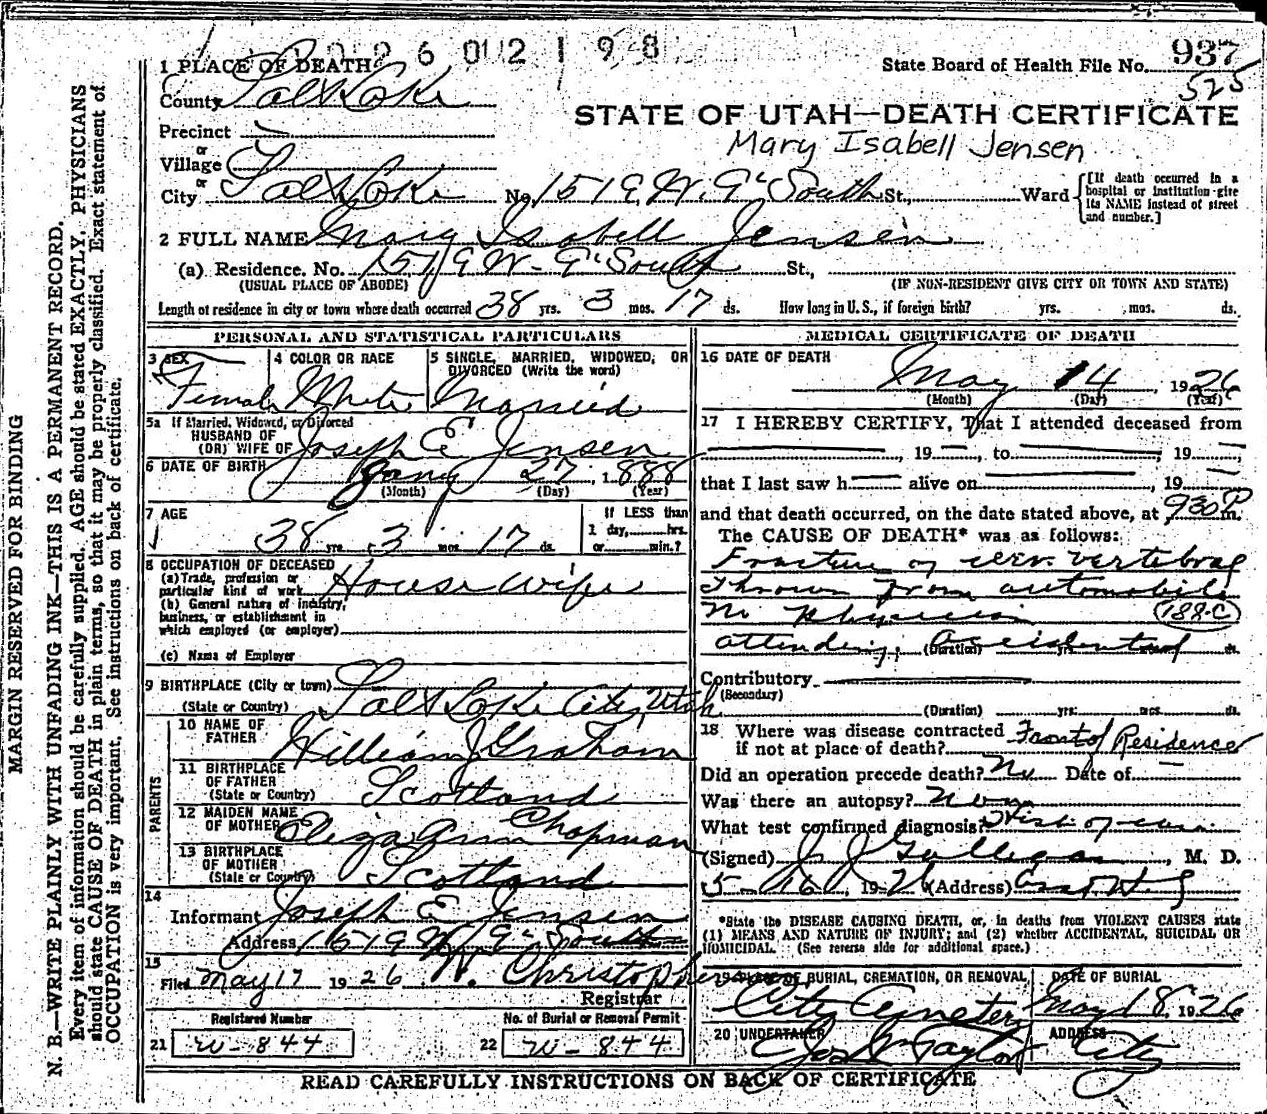 26 002 1 9 8
937
525
1 PLACE OF DEATH
State Board of Health File No.
County Salt Lake
STATE OF UTAH—DEATH CERTIFICATE
Mary Isabell Jensen
Precinct
or
Village
or
City Salt Lake No. 1519 W. 9" South St., Ward
[If death occurred in a hospital or institution give its NAME instead of street and number.]
2 FULL NAME Mary Isabell Jensen
(a) Residence. No. 1519 W - 9" South St.,
(USUAL PLACE OF ABODE) (IF NON-RESIDENT GIVE CITY OR TOWN AND STATE)
Length of residence in city or town where death occurred 38 yrs. 3 mos. 17 ds. How long in U.S., if foreign birth? yrs. mos. ds.
PERSONAL AND STATISTICAL PARTICULARS
3 SEX
Female
4 COLOR OR RACE
White
5 SINGLE, MARRIED, WIDOWED, OR
DIVORCED (Write the word)
Married
5a If Married, Widowed, or Divorced
HUSBAND OF
(OR) WIFE OF Joseph E Jensen
6 DATE OF BIRTH Jany 27, 1888
(Month) (Day) (Year)
7 AGE
38 yrs. 3 mos. 17 ds.
If LESS than
1 day, hrs.
or min.?
8 OCCUPATION OF DECEASED
(a) Trade, profession or
particular kind of work House Wife
(b) General nature of industry,
business, or establishment in
which employed (or employer)
(c) Name of Employer
9 BIRTHPLACE (City or town)
(State or Country) Salt Lake City Utah
PARENTS
10 NAME OF
FATHER William J Graham
11 BIRTHPLACE
OF FATHER
(State or Country) Scotland
12 MAIDEN NAME
OF MOTHER Eliza Ann Chapman
13 BIRTHPLACE
OF MOTHER
(State or Country) Scotland
14
Informant Joseph E Jensen
Address 1519 W 9" South
15
Filed May 17 1926 W. Christopherson
Registrar
Registered Number
21 W-844
No. of Burial or Removal Permit
22 W-844
MEDICAL CERTIFICATE OF DEATH
16 DATE OF DEATH
May 14, 1926
(Month) (Day) (Year)
17 I HEREBY CERTIFY, That I attended deceased from
, 19 , to , 19 ,
that I last saw h alive on , 19
and that death occurred, on the date stated above, at 930 P m.
The CAUSE OF DEATH* was as follows:
Fracture of cerv. vertebral
Thrown from automobile
No Physician 188-C
attending; (Duration) Accidental yrs. ds.
Contributory
(Secondary)
(Duration) yrs. mos. ds.
18 Where was disease contracted
if not at place of death? Front of Residence
Did an operation precede death? No Date of
Was there an autopsy? No
What test confirmed diagnosis? Hist. of case.
(Signed) J J Galligan, M. D.
5-16, 1926 (Address)
*State the DISEASE CAUSING DEATH, or, in deaths from VIOLENT CAUSES state
(1) MEANS AND NATURE OF INJURY; and (2) whether ACCIDENTAL, SUICIDAL OR
HOMICIDAL. (See reverse side for additional space.)
19 PLACE OF BURIAL, CREMATION, OR REMOVAL
City Cemetery
DATE OF BURIAL
May 18, 1926
20 UNDERTAKER
Jos Taylor
ADDRESS
City
READ CAREFULLY INSTRUCTIONS ON BACK OF CERTIFICATE
MARGIN RESERVED FOR BINDING
N. B.—WRITE PLAINLY WITH UNFADING INK—THIS IS A PERMANENT RECORD.
Every item of information should be carefully supplied. AGE should be stated EXACTLY, PHYSICIANS
should state CAUSE OF DEATH in plain terms, so that it may be properly classified. Exact statement of
OCCUPATION is very important. See instructions on back of certificate.